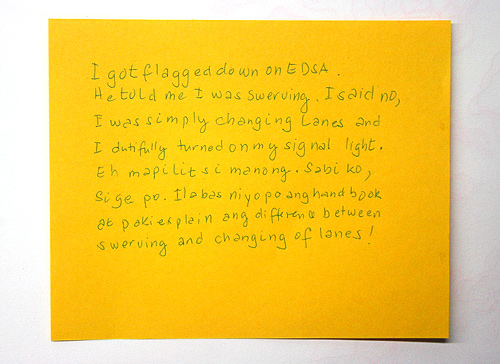 I got flagged down on EDSA.
He told me I was swerving. I said no,
I was simply changing lanes and
I dutifully turned on my signal light.
Eh mapilit si manong. Sabi ko,
Sige po. Ilabas niyo po ang handbook
at pakiesplain ang difference between
swerving and changing of lanes!